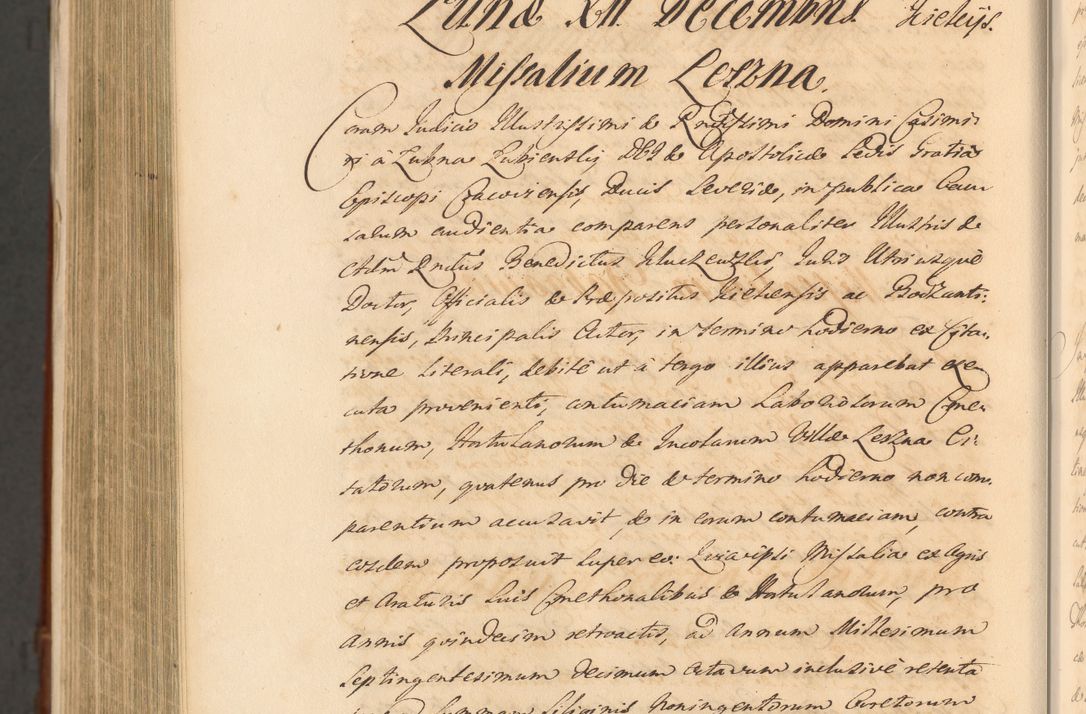 Lunæ XII Decembris Kielcijs.
Missalium Leszna.
Coram Judicio Illustrissimi & Rndissimi Domini Casimi-
ri à Łubna Łubienskij DEI & Apostolicæ Sedis Gratia
Episcopi Cracoviensis, Ducis Severiæ, in publica Cau
sarum audientia comparens personaliter Illustris &
Adm Rndus Benedictus Juris Utriusque
Doctor, Officialis & Præpositus Kielcensis ac Bodzanti:
nensis, Principalis Actor, in termino hodierno ex Cita-
tione Literali, debitè ut à tergo illius apparebat exe
cuta provenienti, contumaciam Laboriosorum Cme-
thonum, Hortulanorum & Incolarum Villæ Leszna Ci-
tatorum, quatenus pro die & termino hodierno non com-
parentium accusavit, & in eorum contumaciam, contra
eosdem proposuit super eo: Quia ipsi Missalia ex Agris
et Araturis suis Cmethonalibus & Hortulanorum, pro
Annis quindecim retroactis, ad Annum Millesimum
Septingentesimum decimum octavum inclusivè retenta
Summam Siliginis Noningentorum Coretorum